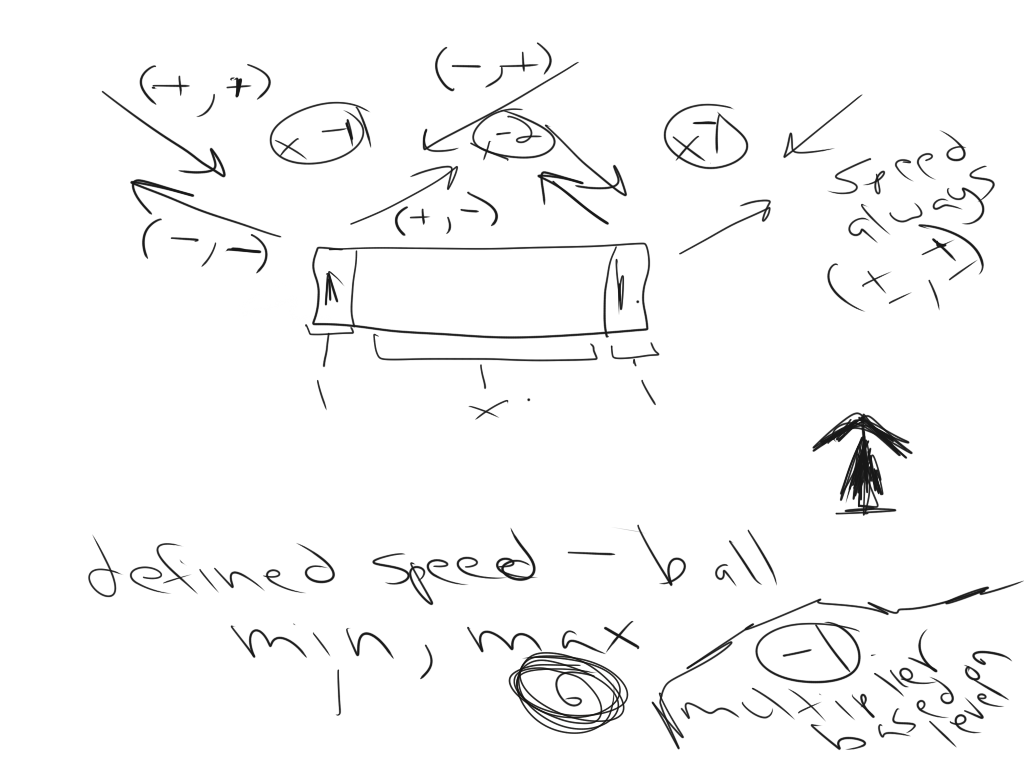 (+,+)
(-,+)
x -1
x -2
x -1
speed
always
(+,-)
(-,-)
(x-1,+)
1
x
1
defined speed - ball
min, max
-1
multiplier
based on
level